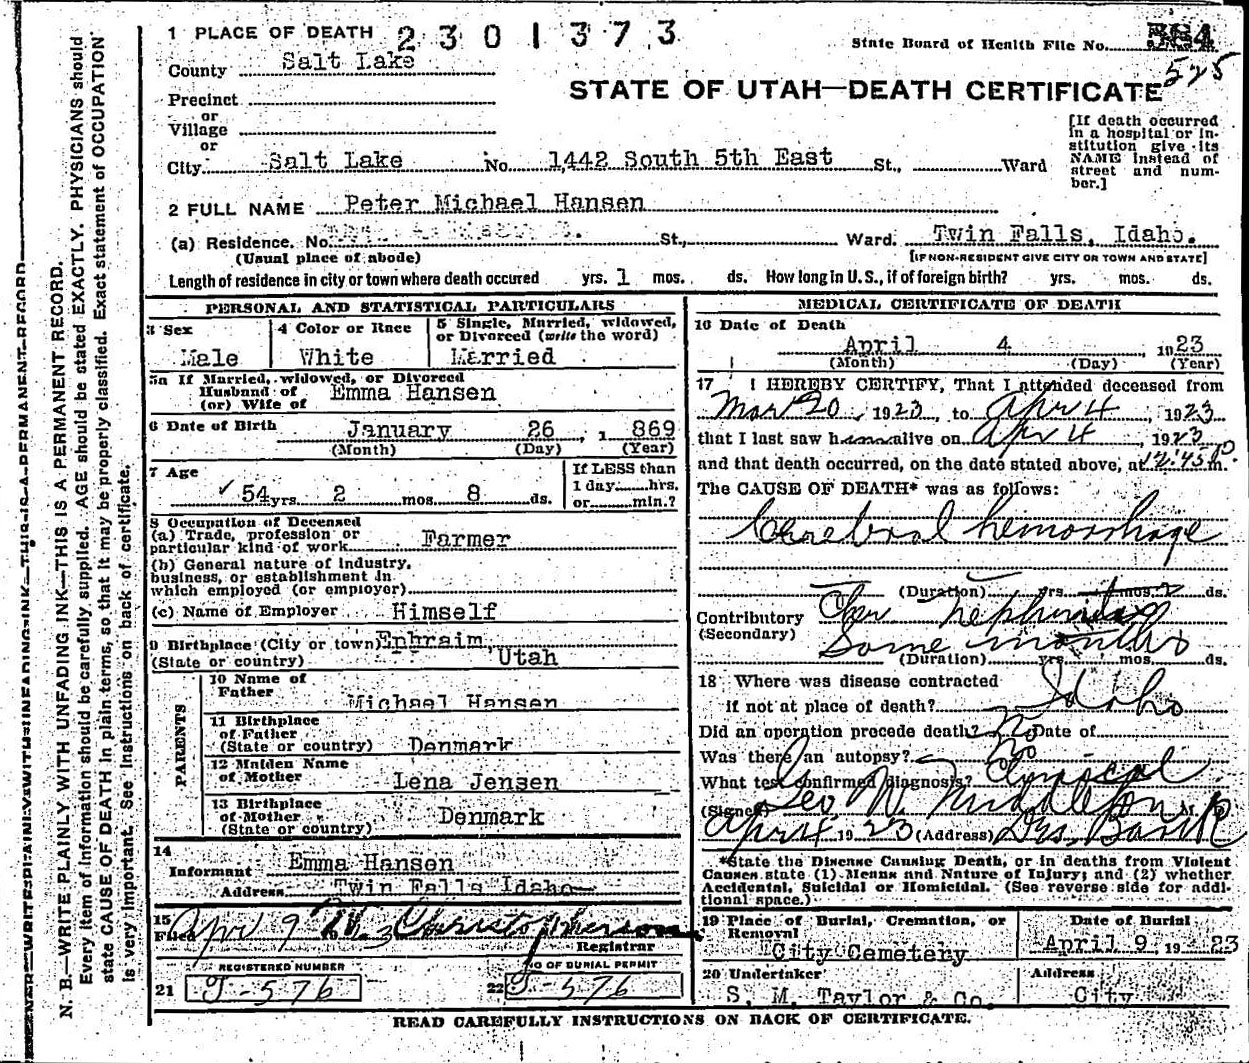 1 PLACE OF DEATH 2301373
State Board of Health File No.
525
County Salt Lake
STATE OF UTAH—DEATH CERTIFICATE
Precinct
or
Village
or
City Salt Lake No. 1442 South 5th East St., Ward
[If death occurred
in a hospital or in-
stitution give its
NAME instead of
street and num-
ber.]
2 FULL NAME Peter Michael Hansen
(a) Residence. No. St., Ward. Twin Falls, Idaho.
(Usual place of abode) [IF NON-RESIDENT GIVE CITY OR TOWN AND STATE]
Length of residence in city or town where death occured yrs. 1 mos. ds. How long in U.S., if of foreign birth? yrs. mos. ds.
PERSONAL AND STATISTICAL PARTICULARS
3 Sex
Male
4 Color or Race
White
5 Single, Married, widowed,
or Divorced (write the word)
Married
5a If Married, widowed, or Divorced
Husband of
(or) Wife of Emma Hansen
6 Date of Birth January 26, 1869
(Month) (Day) (Year)
7 Age
54 yrs. 2 mos. 8 ds.
If LESS than
1 day......hrs.
or.........min.?
8 Occupation of Deceased
(a) Trade, profession or
particular kind of work Farmer
(b) General nature of industry,
business, or establishment in
which employed (or employer)
(c) Name of Employer Himself
9 Birthplace (City or town) Ephraim,
(State or country) Utah
PARENTS
10 Name of
Father Michael Hansen
11 Birthplace
of Father
(State or country) Denmark
12 Maiden Name
of Mother Lena Jensen
13 Birthplace
of Mother
(State or country) Denmark
14
Informant Emma Hansen
Address Twin Falls Idaho
15
Filed Apr 9
Registrar
REGISTERED NUMBER
21 J-576
NO OF BURIAL PERMIT
22 J-576
MEDICAL CERTIFICATE OF DEATH
16 Date of Death
April 4, 1923
(Month) (Day) (Year)
17 I HEREBY CERTIFY, That I attended deceased from
Mar 20, 1923, to Apr 4, 1923
that I last saw him alive on Apr 4, 1923
and that death occurred, on the date stated above, at 12:45 p.m.
The CAUSE OF DEATH* was as follows:
Cerebral hemorrhage
(Duration) yrs. mos. ds.
Contributory Chr nephritis
(Secondary) Some months
(Duration) yrs. mos. ds.
18 Where was disease contracted
if not at place of death? Idaho
Did an operation precede death? No Date of
Was there an autopsy? No
What test confirmed diagnosis? Clinical
(Signed) Geo W. Middleton M.D.
Apr 4 1923 (Address) Drs. Bank
*State the Disease Causing Death, or in deaths from Violent
Causes state (1) Means and Nature of Injury; and (2) whether
Accidental, Suicidal or Homicidal. (See reverse side for addi-
tional space.)
19 Place of Burial, Cremation, or
Removal
City Cemetery
Date of Burial
April 9, 1923
20 Undertaker
S. M. Taylor & Co.
Address
City
READ CAREFULLY INSTRUCTIONS ON BACK OF CERTIFICATE.
N. B.—WRITE PLAINLY WITH UNFADING INK—THIS IS A PERMANENT RECORD.
Every item of information should be carefully supplied. AGE should be stated EXACTLY. PHYSICIANS should
state CAUSE OF DEATH in plain terms, so that it may be properly classified. Exact statement of OCCUPATION
is very important. See instructions on back of certificate.